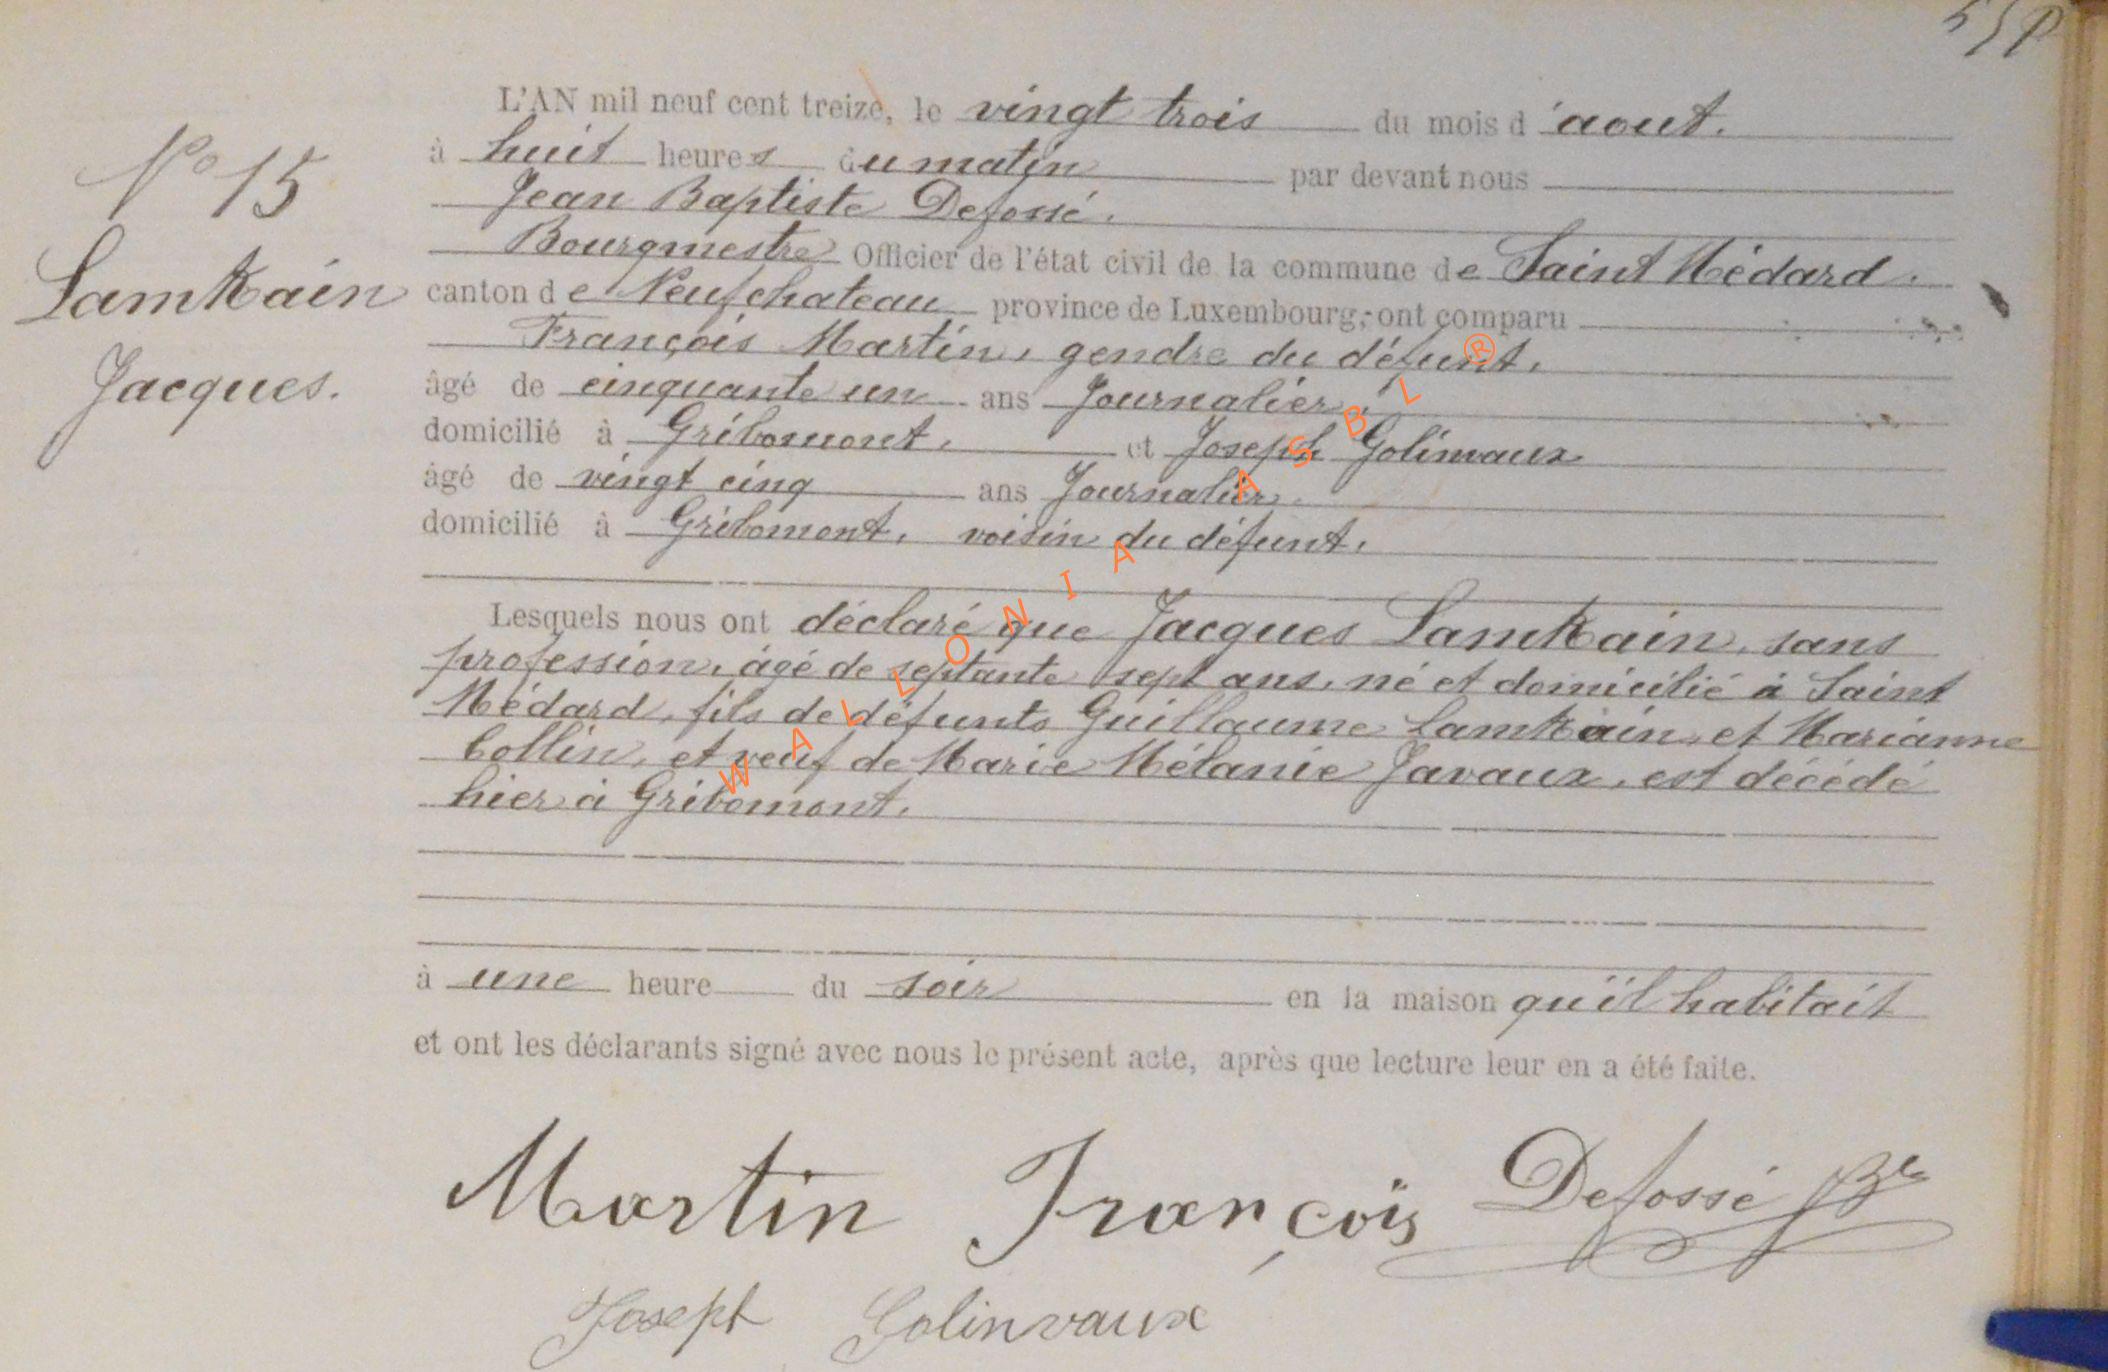 L'AN mil neuf cent treize, le vingt trois du mois d'aout.
à huit heures du matin par devant nous
Jean Baptiste Defossé.
Bourgmestre Officier de l'état civil de la commune de Saint Médard.
canton de Neufchateau province de Luxembourg, ont comparu
François Martin, gendre du défunt,
âgé de cinquante un ans Journalier,
domicilié à Gribomont, et Joseph Golinvaux
âgé de vingt cinq ans Journalier.
domicilié à Gribomont, voisin du défunt,
Nº 15
Lamkain
Jacques.
Lesquels nous ont déclaré que Jacques Lamkain, sans
profession, âgé de septante sept ans, né et domicilié à Saint
Médard, fils de défunts Guillaume Lamkain, et Marianne
Collin, et veuf de Marie Mélanie Javaux, est décédé
hier à Gribomont,
à une heure du soir en la maison qu'il habitait
et ont les déclarants signé avec nous le présent acte, après que lecture leur en a été faite.
Martin François Defossé
Joseph Golinvaux
WALLONIA ASBL ®